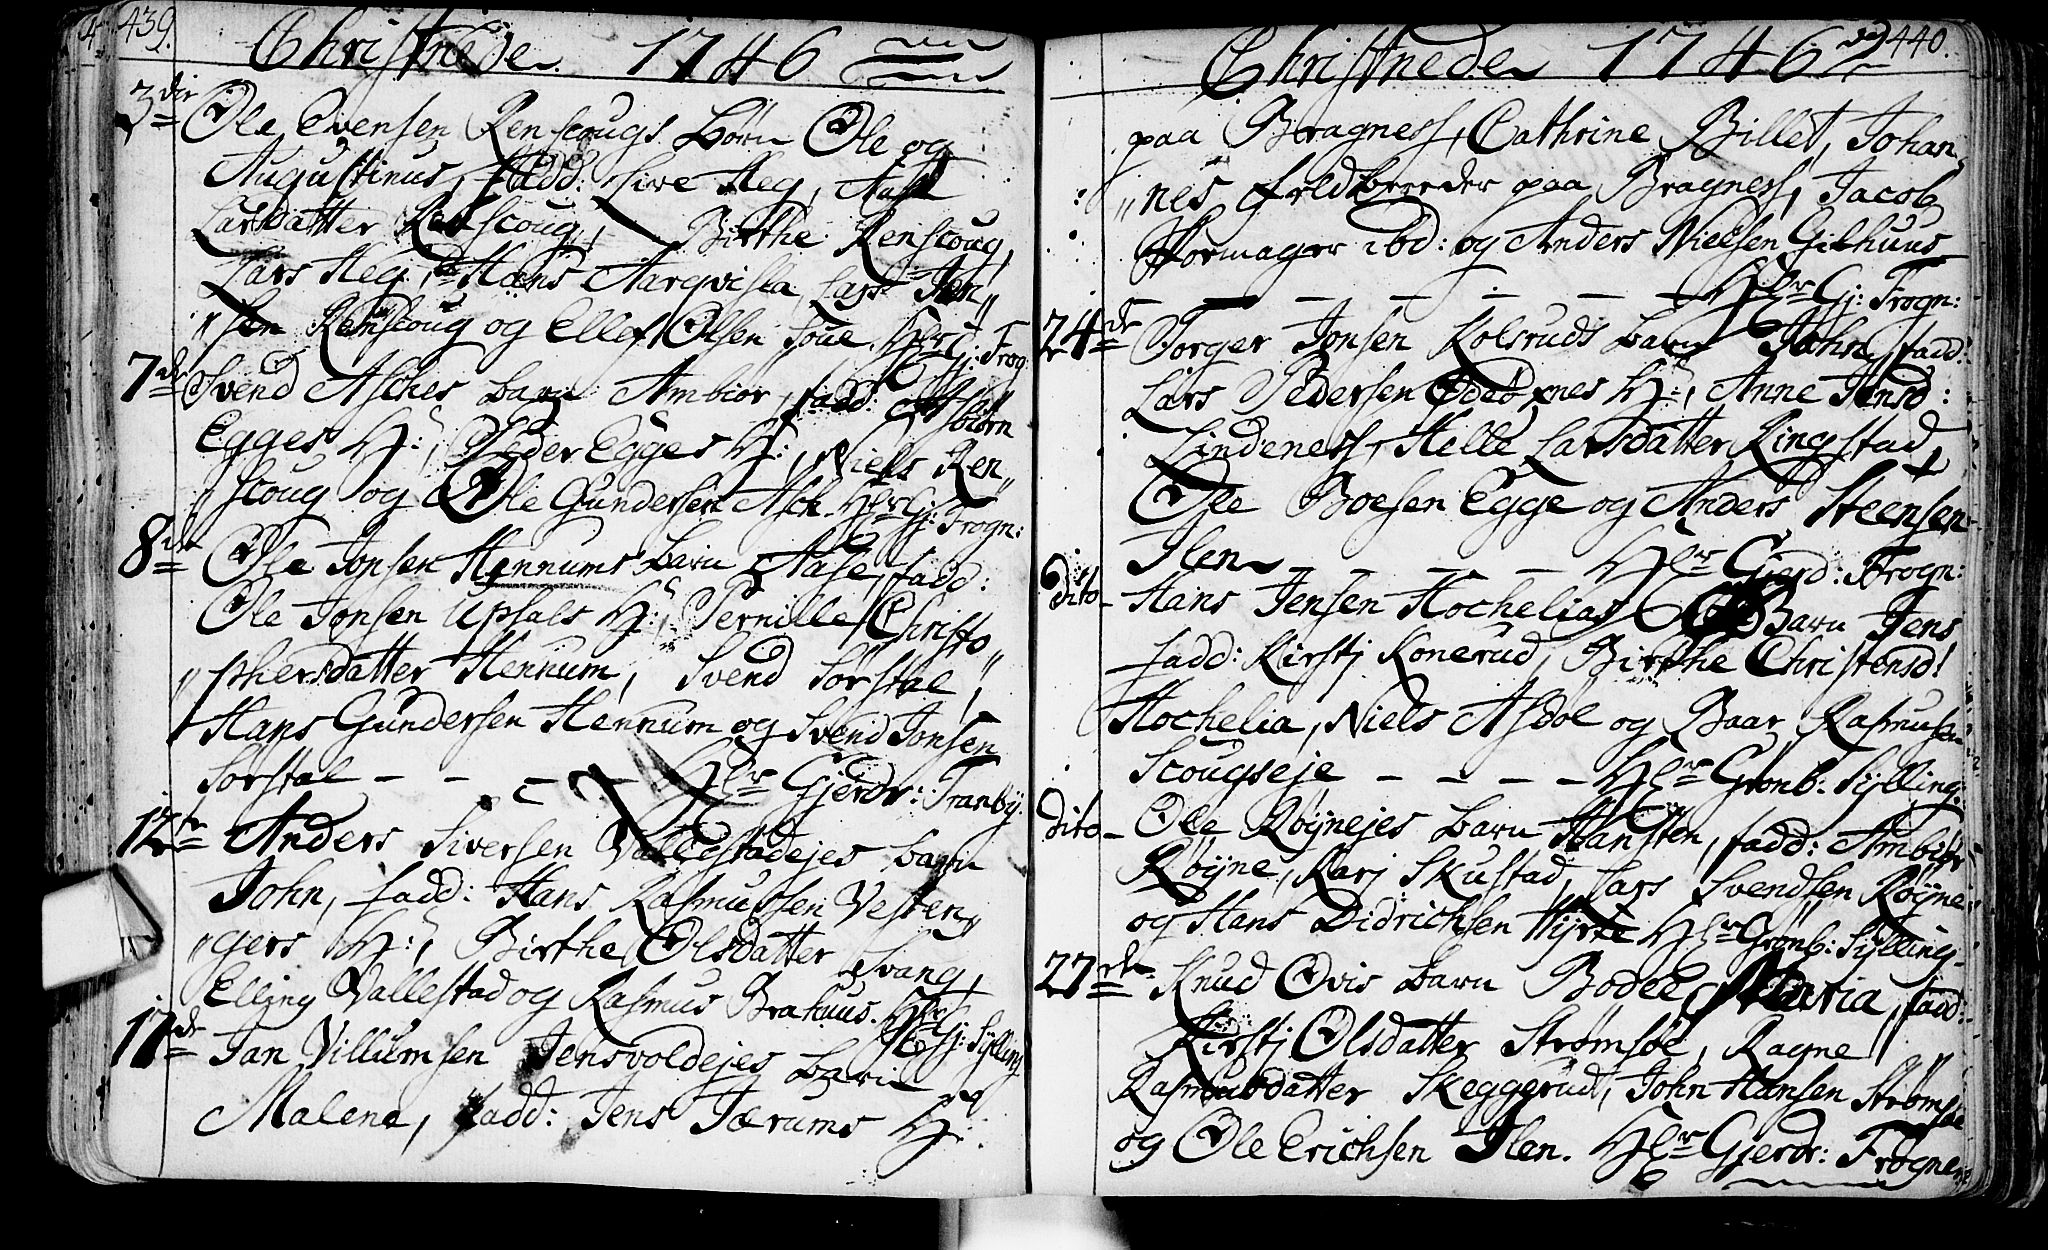 439.
Christnede 1746
3die Ole Evensen Renscougs børn Ole og
Augustinus, fadd: Sive Heg, Aase
Larsdatter Renscoug, Birthe Renscoug,
Lars Heg, Hans Aarqvisla, Lars Jen„
„sen Renscoug og Ellef Olsen Soue. Hlr Gj: Frog
7de Svend Asches barn Ambior, fadd: Asbiørn
Egges H:, Peder Egges H:, Niels Ren„
„scoug og Ole Gundersen Asch. Hlr Gj: Frogn:
8de Ole Jonsen Hennums barn Aase, fadd:
Ole Jonsen Upsals H:, Pernille Christo„
„phersdatter Hennum, Svend Sørstal,
Hans Gundersen Hennum og Svend Jonsen
Sørstal – – – – Hlr Gjerdr: Tranby:
12te Anders Siversen Vallestadejes barn
John, fadd: Hans Rasmussen Vesten„
„gers H:, Birthe Olsdatter Svang,
Elling Vallestad og Rasmus Brahuus. Hlr Gj: Sylling
17de Jan Villumsen Jensvoldejes barn
Malene, fadd: Jens Jærums H:
440.
Christnede 1746
paa Bragness, Cathrine Billet, Johan„
„nes Feldbereder paa Bragness, Jacob
Pormager ibd: og Anders Nielsen Gilhuus
– – – – – Hlr Gj: Frogn:
24de Torger Jonsen Kolsruds barn John, fadd:
Lars Pedersen Ødegrnes H:, Anne Jensd:
Lindeness, Helle Larsdatter Ringstad,
Ole Boesen Egge og Anders Steensen
Ilen – – – – Hlr Gjerd: Frogn:
dito – Hans Jensen Hochelias Barn Jens
fadd: Kirstj Konerud, Birthe Christensd:
Hochelia, Niels Asdøl og Baar Rasmusen
Scougseje – – – – Hlr Grønb: Sylling:
dito – Ole Røynejes barn Hansten, fadd: Ambiør
Røyne, Karj Skustad, Lars Svendsen Røyne
og Hans Didrichsen Hyrte Hlr Grønb: Sylling
27de Knud Ovis barn Bodel Maria, fadd:
Kirstj Olsdatter Strømsøe, Ragne
Rasmusdatter Skeggerud, John Hansen Strømsøe
og Ole Erichsen Ilen. Hlr Gjerdr: Frogner